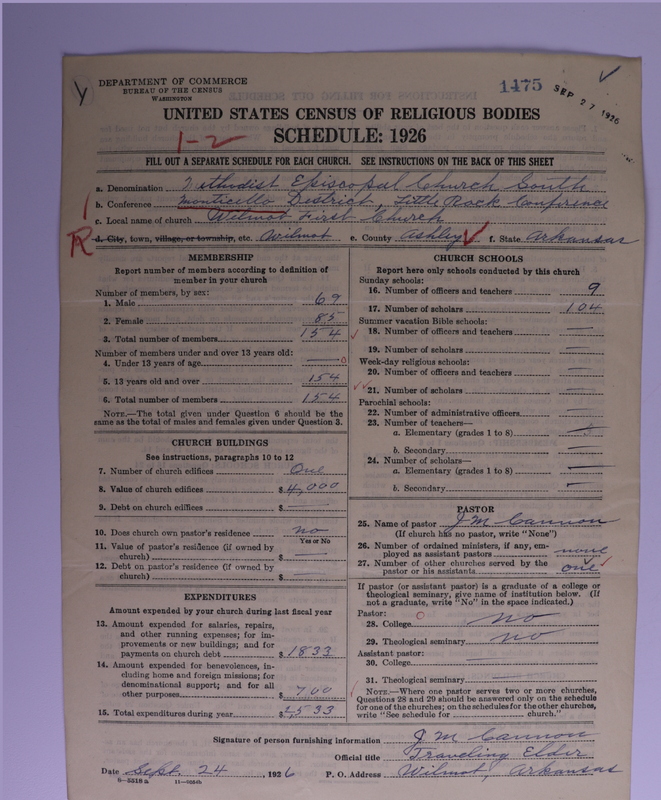 DEPARTMENT OF COMMERCE
BUREAU OF THE CENSUS
WASHINGTON
1475
SEP 27 1926
UNITED STATES CENSUS OF RELIGIOUS BODIES
1-2
SCHEDULE: 1926
FILL OUT A SEPARATE SCHEDULE FOR EACH CHURCH. SEE INSTRUCTIONS ON THE BACK OF THIS SHEET
a. Denomination Methodist Episcopal Church South
b. Conference Monticello District, Little Rock Conference
c. Local name of church Wilmot First Church
R d. City, town, village, or township, etc. Wilmot e. County Ashley f. State Arkansas
MEMBERSHIP
Report number of members according to definition of
member in your church
Number of members, by sex:
1. Male 69
2. Female 85
3. Total number of members 154
Number of members under and over 13 years old:
4. Under 13 years of age — 0
5. 13 years old and over 154
6. Total number of members 154
NOTE.—The total given under Question 6 should be the
same as the total of males and females given under Question 3.
CHURCH BUILDINGS
See instructions, paragraphs 10 to 12
7. Number of church edifices One
8. Value of church edifices $ 4,000
9. Debt on church edifices $ —
10. Does church own pastor's residence no
Yes or No
11. Value of pastor's residence (if owned by
church) $ —
12. Debt on pastor's residence (if owned by
church) $ —
EXPENDITURES
Amount expended by your church during last fiscal year
13. Amount expended for salaries, repairs,
and other running expenses; for im-
provements or new buildings; and for
payments on church debt $ 1833
14. Amount expended for benevolences, in-
cluding home and foreign missions; for
denominational support; and for all
other purposes $ 700
15. Total expenditures during year $ 2,533
CHURCH SCHOOLS
Report here only schools conducted by this church
Sunday schools:
16. Number of officers and teachers 9
17. Number of scholars 104
Summer vacation Bible schools:
18. Number of officers and teachers —
19. Number of scholars —
Week-day religious schools:
20. Number of officers and teachers —
21. Number of scholars —
Parochial schools:
22. Number of administrative officers —
23. Number of teachers—
a. Elementary (grades 1 to 8) —
b. Secondary —
24. Number of scholars—
a. Elementary (grades 1 to 8) —
b. Secondary —
PASTOR
25. Name of pastor J M Cannon
(If church has no pastor, write "None")
26. Number of ordained ministers, if any, em-
ployed as assistant pastors none
27. Number of other churches served by the
pastor or his assistants one
If pastor (or assistant pastor) is a graduate of a college or
theological seminary, give name of institution below. (If
not a graduate, write "No" in the space indicated.)
Pastor:
28. College no
29. Theological seminary no
Assistant pastor:
30. College —
31. Theological seminary —
NOTE.—Where one pastor serves two or more churches,
Questions 28 and 29 should be answered only on the schedule
for one of the churches; on the schedules for the other churches,
write "See schedule for church."
Signature of person furnishing information J M Cannon
Official title Traveling Elder
Date Sept. 24, 1926 P. O. Address Wilmot, Arkansas